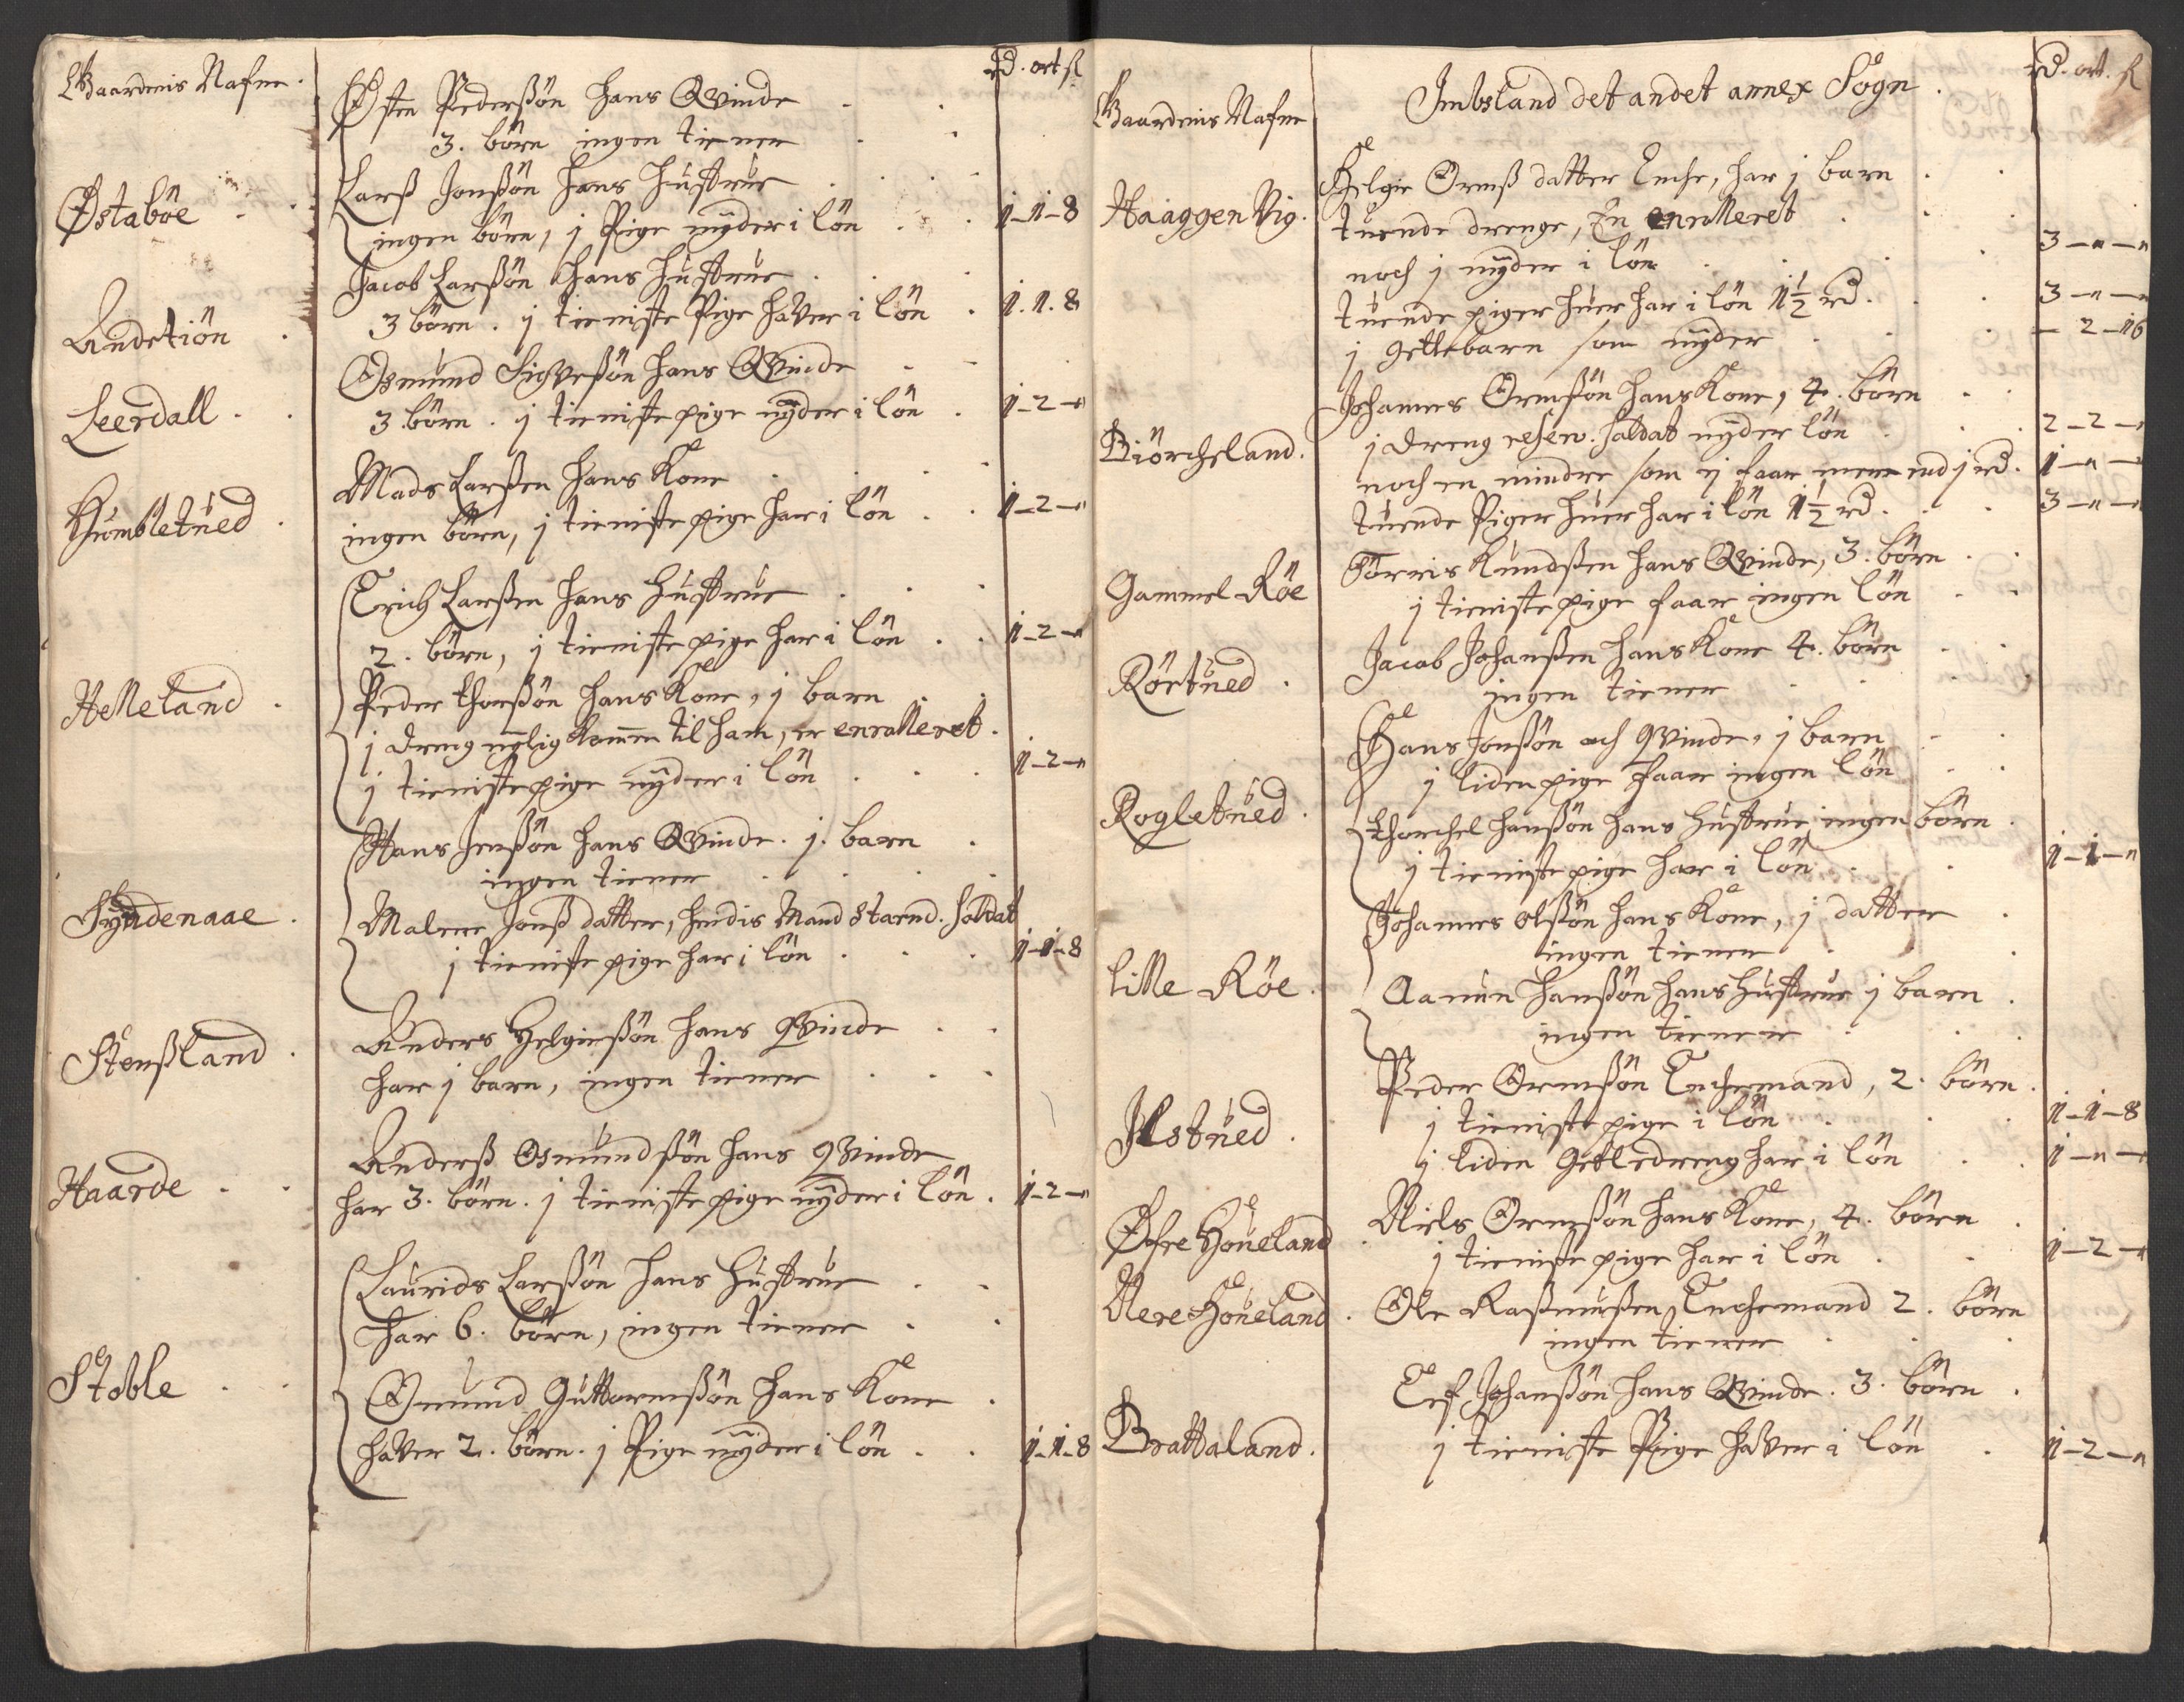 Gaardenis Nafne.
rd. ort. ß
Østen Pederßøn hans Qvinde
3. børn ingen tiener
Østabøe
Larß Jonßøn hans hustrue
ingen børn, j Pige nyder i løn 1-1-8
Andetiøn
Jacob Larßøn hans hustrue
3 børn. j tieniste Pige haver i løn 1.1.8
Leerdall
Osmund Sigveßøn hans Qvinde
3. børn. j tieniste pige nyder i løn 1-2-"
Humbletued
Mads Larßen hans Kone
ingen børn, j tieniste pige har i løn 1-2-"
Erich Larßen hans hustrue
2. børn, j tieniste pige har i løn 1-2-"
Helleland
Peder Thorßøn hans Kone, j barn
j dreng nylig kommen til ham, er enrolleret.
j tieniste pige nyder i løn 1-2-"
Hans Jenßøn hans Qvinde. j. barn
ingen tiener
Syndenaae
Malene Jonß datter, hendis Mand Starnd. Soldat
j tieniste pige har i løn 1-1-8
Stenßland
Anders Helgießøn hans Qvinde
har j barn, ingen tiener
Haarde
Anderß Osmundßøn hans Qvinde
har 3. børn. j tieniste pige nyder i løn. 1-2-"
Laurids Larßøn hans hustrue
har 6. børn, ingen tiener
Støble
Omund Guttormßøn hans Kone
haver 2. børn. j Pige nyder i løn 1-1-8
Gaardenis Nafne
Imbsland det andet annex Sogn.
rd. ort. ß
Haaggen Vig.
Helgie Ormß datter Enche, har j barn
tuende drenge, En enrolleret
noch j nyder i løn 3-"-"
tuende piger huer har i løn 1½ rd. 3-"-"
j gettebarn som nyder -2-16
Biørcheland.
Johannes Ormßøn hans Kone, 4. børn
j dreng reserv. soldat nyder løn 2-2-"
noch en mindre som ej faar mere end j rd. 1-"-"
tuende Piger huer har i løn 1½ rd. 3-"-"
Gammel Røe
Torris Knudßen hans Qvinde, 3. børn
j tieniste pige faar ingen løn
Rørtued
Jacob Johanßen hans Kone 4. børn
ingen tiener
Hans Jonßøn och Qvinde, j barn
j liden pige faar ingen løn
Rogletued
Thorchel Hanßøn hans hustrue ingen børn.
j tieniste pige har i løn 1-1-"
Johannes Olßøn hans Kone, j datter
ingen tiener
Lille Røe
Aanun Hanßøn hans hustrue j barn
ingen tienere
Ilstued.
Peder Ormßøn Enchemand, 2. børn.
j tieniste pige i løn 1-1-8
j liden Gettedreng har i løn 1-"-"
Øfre Høueland
Niels Ormßøn hans Kone, 4. børn
j tieniste pige har i løn 1-2-"
Nere Høueland
Ole Raßmußen, Enchemand 2. børn
ingen tiener
Brattaland.
Eef Johanßøn hans Qvinde. 3. børn
j tieniste Pige haver i løn 1-2-"